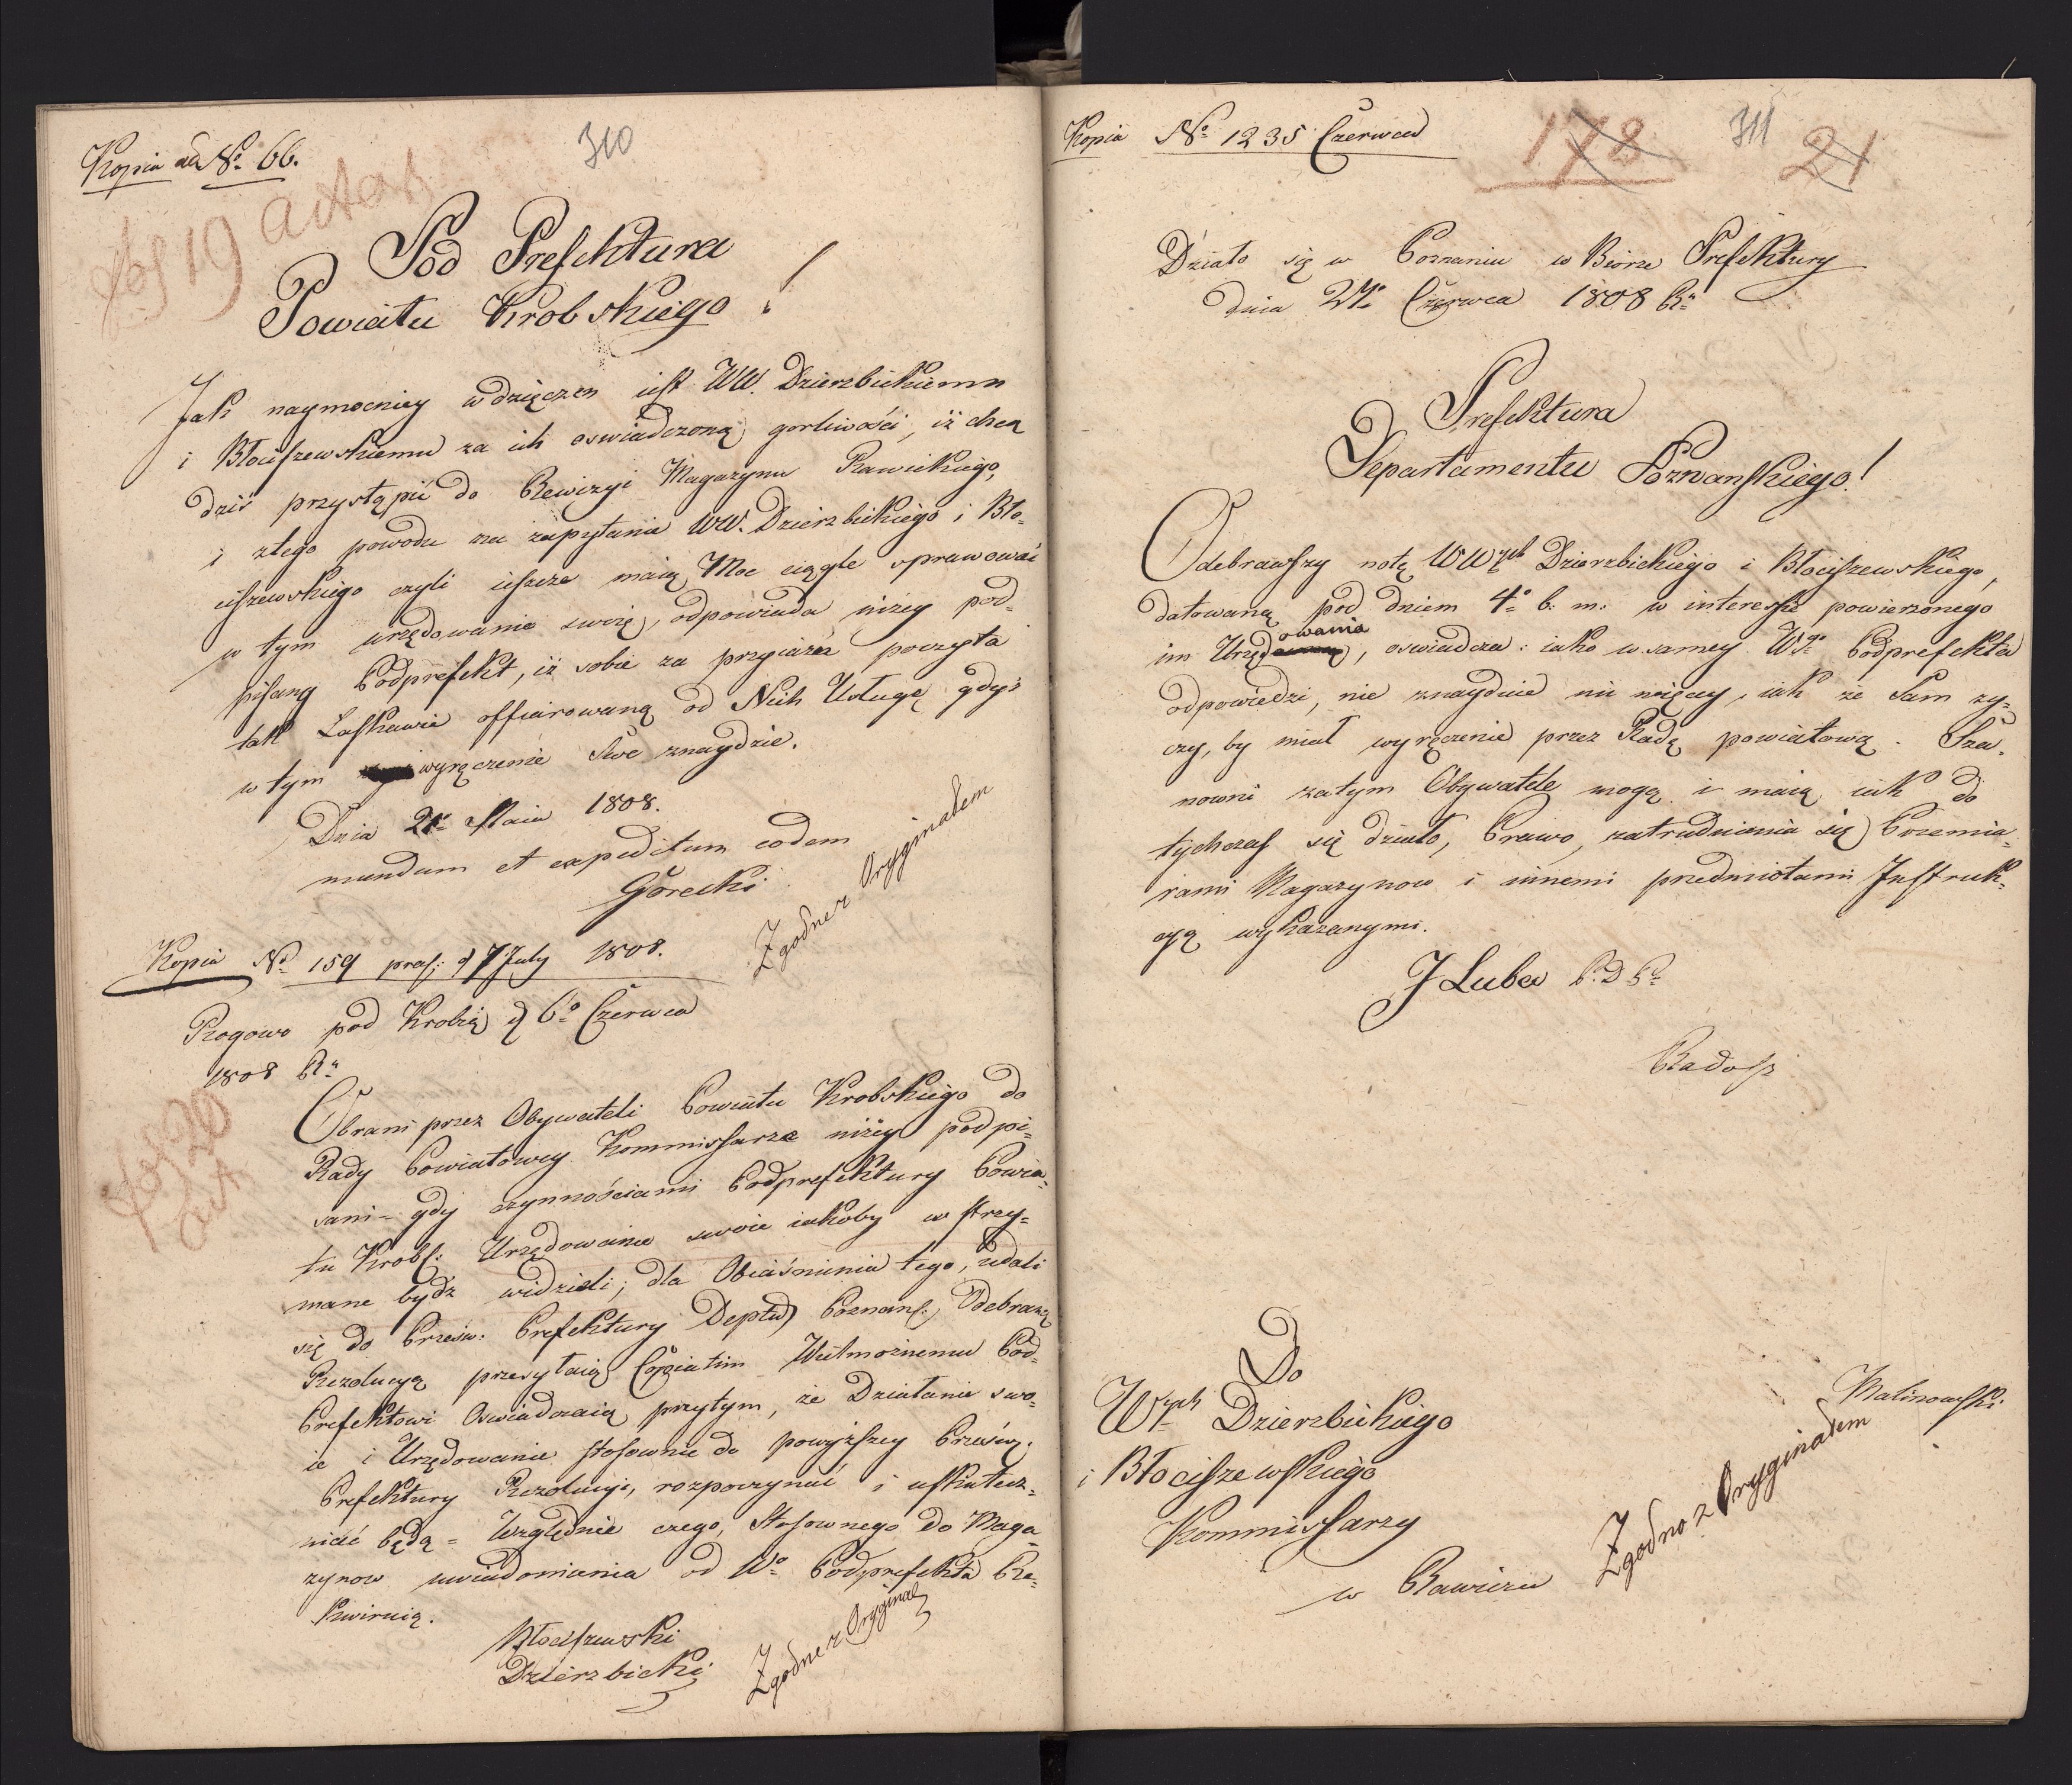 Kopia ad No 66.
310
fol 19 actor
Pod Prefektura
Powiatu Krobskiego!
Jak naymocniey wdzięczen iest WW. Dzierzbickiemu
i Błociszewskiemu za ich oswiadczoną gorliwości, iż chcą
dziś przystąpić do Rewizyi Magazynu Rawickiego,
i ztego powodu na zapytanie WW. Dzierzbickiego i Bło-
ciszewskiego czyli ieszcze maią Moc ciągle sprawować
w tym urzędowanie swoie, odpowiada niżey pod-
pisany Podprefekt, iż sobie za przyiaźń poczyta
tak Łaskawie offiarowaną od Nich Usługę gdyż
w tym wyręczenie Swe znaydzie.
Dnia 21o Maia 1808.
mundum et expeditum eodem
Gorecki
Zgodne z Oryginałem
Kopia No 159 pras: d 7 July 1808.
Rogowo pod Krobią d 6o Czerwca
1808 Ro
fol 20
act
Obrani przez Obywateli Powiatu Krobskiego do
Rady Powiatowey Kommissarze niżey podpi-
sani - gdy czynnościami Podprefektury Powia-
tu Krobs: Urzędowanie swoie iakoby wstrzy-
mane bydź widzieli; dla Obiaśnienia tego, udali
się do Prześw. Prefektury Deptu Poznans: Odebraną
Rezolucyą przesyłaią Copiatim Wielmożnemu Pod-
Prefektowi Oswiadczaią przytym, że Działanie swo-
ie i Urzędowanie stosownie do powyższey Prześw.
Prefektury Rezolucyi, rozpoczynać i uskutecz-
niać będą - Względnie czego, Stosownego do Maga-
zynow uwiadomienia od Wo Podprefekta Re-
kwiruią.
Błociszewski
Dzierzbicki
Zgodne z Oryginał
Kopia No 1235 Czerwca
178
311
21
Działo się w Poznaniu w Biorze Prefektury
dnia Czerwca 1808 Ro
Prefektura
Departamentu Poznanskiego!
Odebrawszy notę WWych Dzierzbickiego i Błociszewskiego,
datowaną pod dniem 4o b. m. w interessie powierzonego
im Urzędowania, oswiadcza: iako w samey Wgo Podprefekta
odpowiedzi, nie znayduie nic więcy, iak że Sam zy-
czy, by miał wyręczenie przez Radę powiatową. Sza-
nowni zatym Obywatele mogą i maią iak do
tychczas się działo, Prawo, zatrudniania się Pozemia-
rami Magazynow i innemi przedmiotami Instruk-
cyą wykazanymi.
J Luba P. D Po
Radosz
Do
Wych Dzierzbickiego
i Błociszewskiego
Kommissarzy
w Rawiczu
Malinowski
Zgodno z Oryginałem